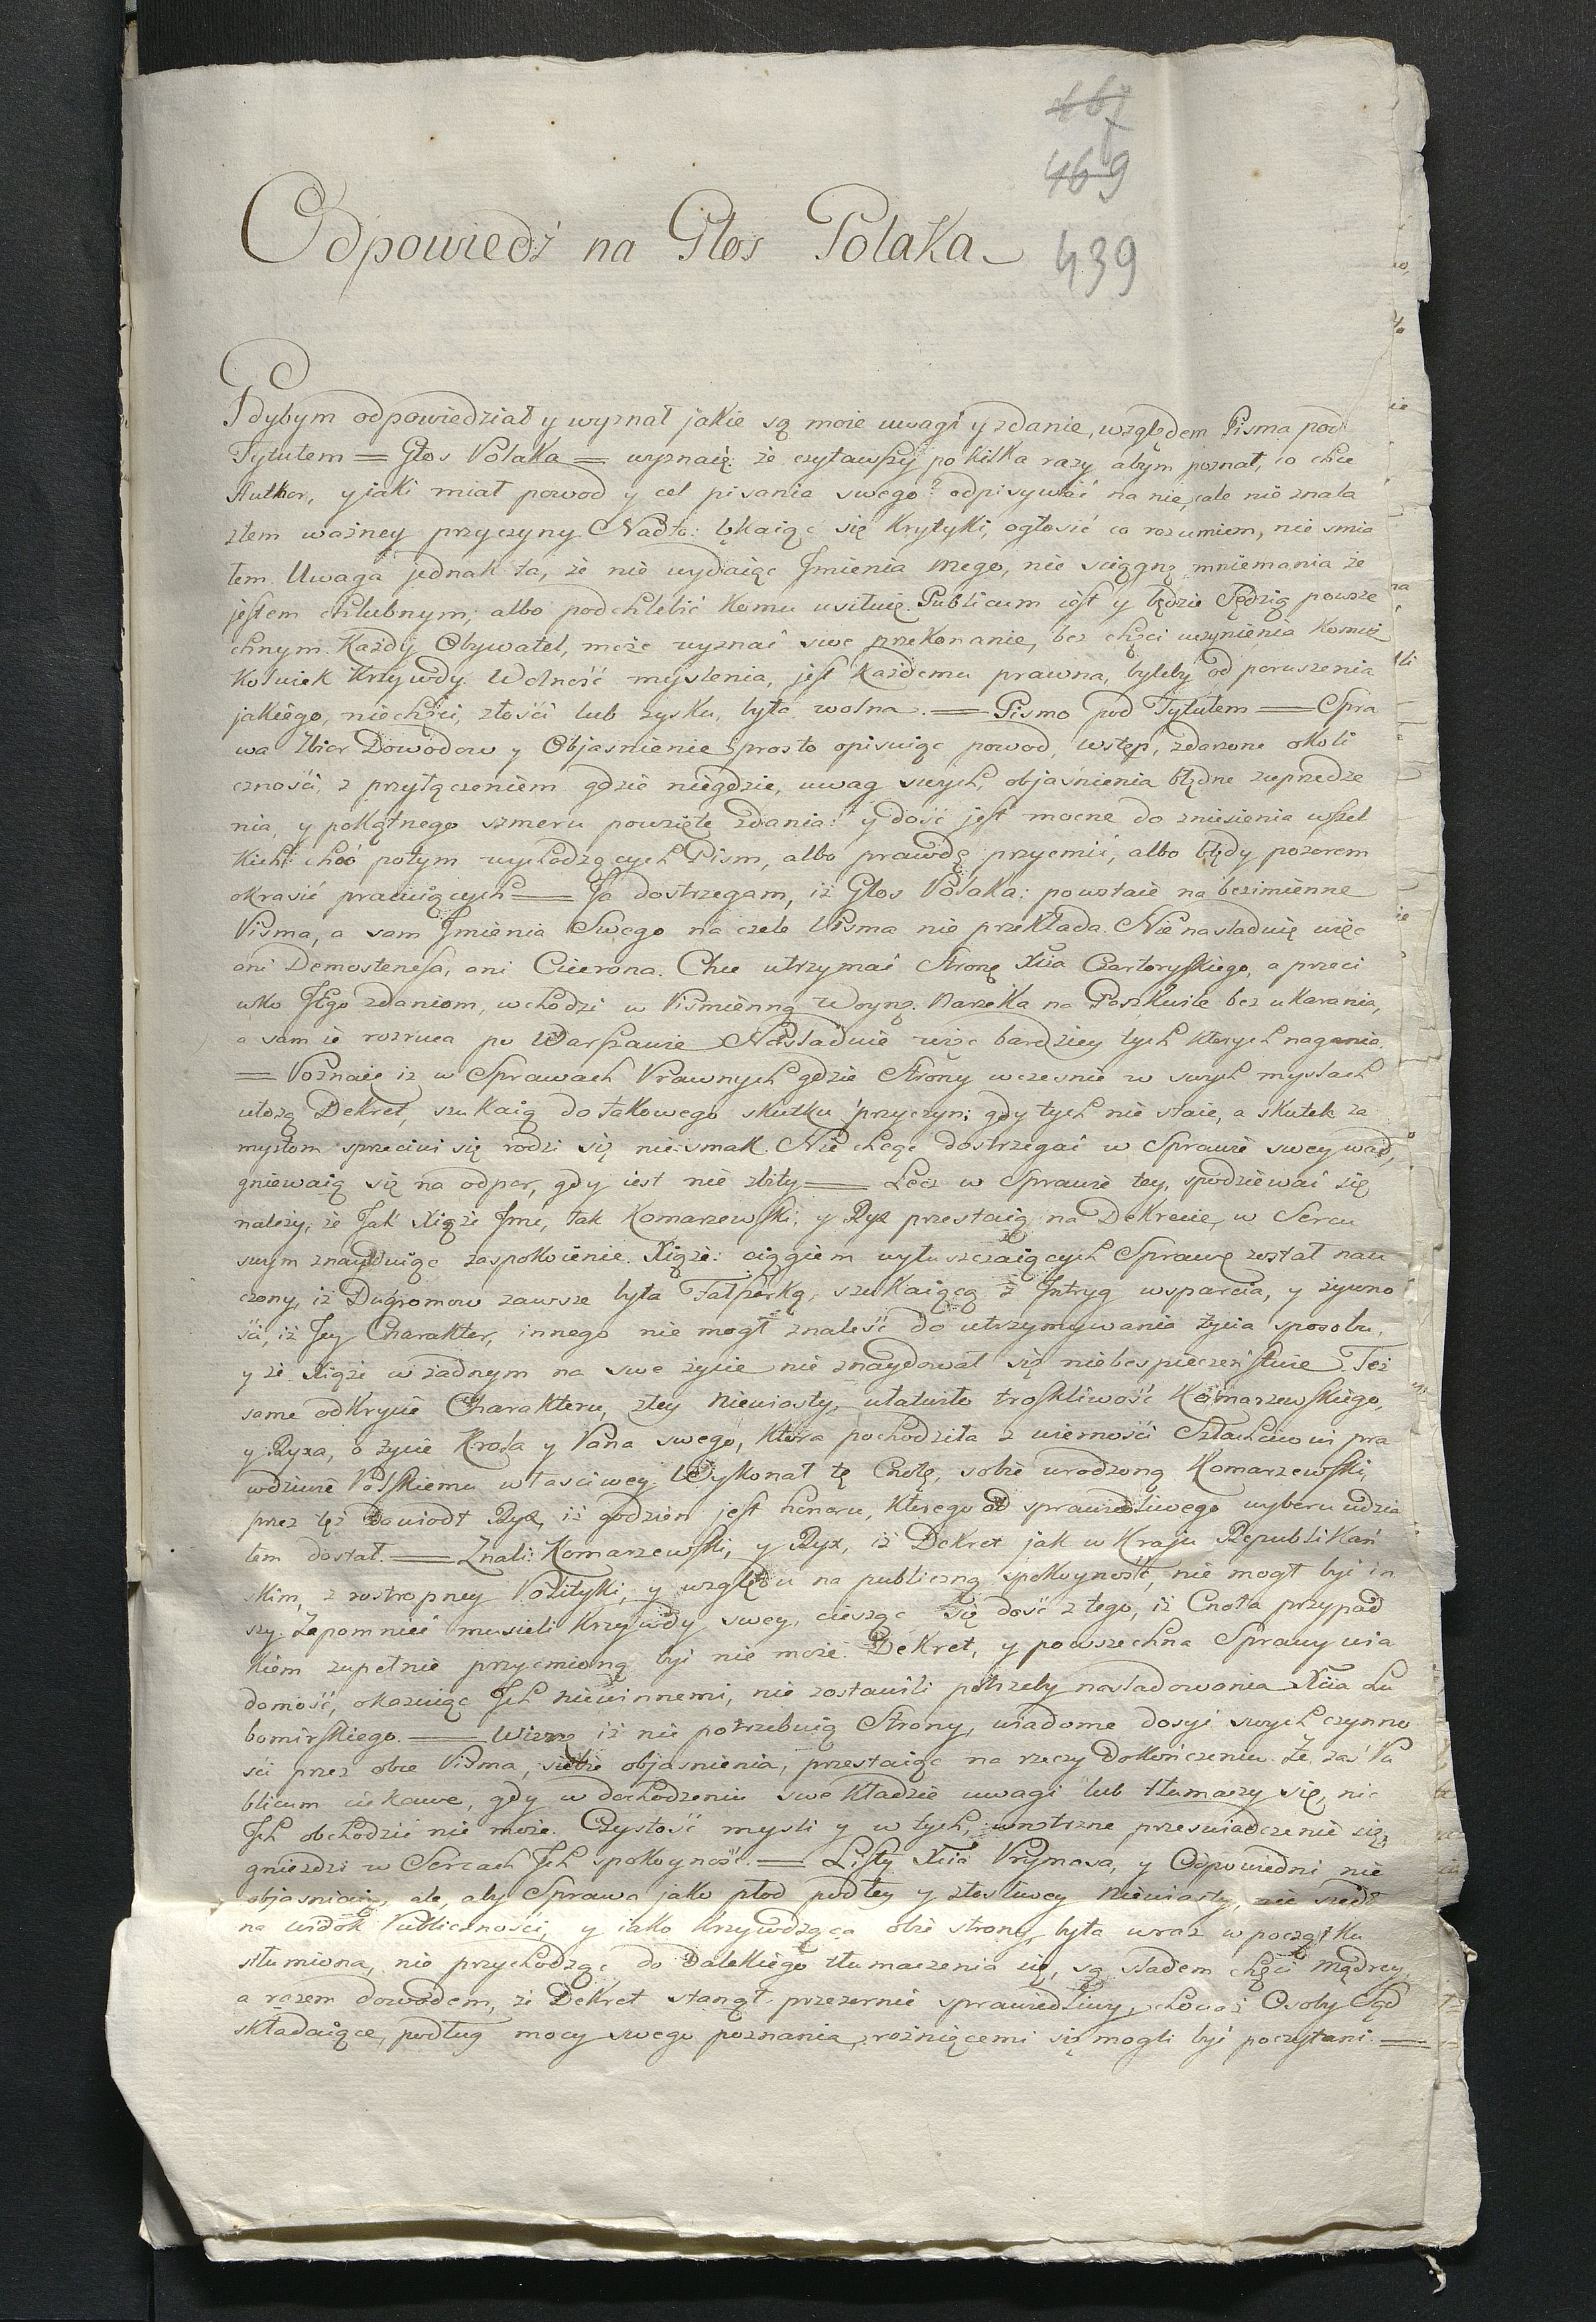 467
469
Odpowiedź na Głos Polaka
439
Gdybym odpowiedział y wyznał jakie są moie uwagi y zdanie, względem Pisma pod
Tytułem = Głos Polaka = wyznaię: że czytawszy po kilka razy abym poznał, co chce
Author, y jaki miał powod y cel pisania swego? odpisywać na nie, cale nie znala
złem ważney przyczyny Nadto: lękaiąc się Krytyki, ogłosić co rozumiem, nie smia
łem. Uwaga jednak ta, że nie wydaiąc Jmienia mego, nie sciągnę mniemania że
jestem chlubnym; albo podchlebić komu usiłuię. Publicum iest y będzie Sędzią powsze
chnym. Każdy Obywatel, może wyznać swe przekonanie, bez chęci uczynienia komuż
kolwiek Krzywdy. Wolność myslenia, jest każdemu prawna, byleby od poruszenia
jakiego, niechęci, złości lub zysku, była wolna. = Pismo pod Tytułem = Spra
wa Zbior Dowodow y Objasnienie prosto opisuiąc powod, wstęp, zdarzone okoli
czności, z przyłączeniem gdzie niegdzie, uwag swych, objaśnienia błędne uprzedze
nia, y pokątnego szmeru powzięte zdania: y dość jest mocne do zniesienia wszel
kich choć potym wychodzących Pism, albo prawdę przycmić, albo błędy pozorem
okrasić pracuiących = Ja dostrzegam, iż Głos Polaka: powstaie na bezimienne
Pisma, a sam Jmienia Swego na czele Pisma nie przekłada. Nie nasladuię więc
ani Demostenesa, ani Cicerona. Chce utrzymać Stronę Xcia Czartoryskiego, a przeci
wko Jego zdaniom, wchodzi w Pismienną Woynę. Narzeka na Paszkwile bez ukarania,
a sam ie rozrzuca po Warszawie Nasladuie więc bardziey tych ktorych nagania.
= Poznaię iż w Sprawach Prawnych gdzie Strony wczesnie w swych myslach
ułożą Dekret, szukaią do takowego skutku przyczyn; gdy tych nie staie, a skutek za
mysłom sprzeciwi się rodzi się niesmak. Nie chcąc dostrzegać w Sprawie swey wad,
gniewaią się na odpor, gdy iest nie zbity = Lecz w Sprawie tey, spodziewać się
należy, że Jak Xiąże Jmć, tak Komarzewski, y Ryx przestaią na Dekrecie, w Sercu
swym znayduiąc zaspokoienie. Xiąże: ciągiem wytłuszczaiących Sprawę został nau
czony, iż Dugromow zawsze była Fałszerką, szukaiącą z Jntryg wsparcia, y żywno
ści, iż Jey Charakter, innego nie mogł znaleść do utrzymywania życia sposobu,
y że Xiąże w żadnym na swe życie nie znaydował się niebespieczeństwie. Toż
same odkrycie Charakteru, złey Niewiasty, ułatwiło troskliwość Komarzewskiego,
y Ryxa, o życie Krola y Pana swego, ktora pochodziła z wierności Szlachcicowi pra
wdziwie Polskiemu własciwey. Wykonał tę Cnotę, sobie urodzoną Komarzewski,
przez tęż Dowiodł Ryx, iż godzien jest honoru, ktorego od sprawiedliwego wyboru udzia
łem dostał. = Znali: Komarzewski, y Ryx, iż Dekret jak w Kraju Republikań
skim, z rostropney Polityki, y względu na publiczną spokoyność, nie mogł być in
szy. Zapomnieć musieli krzywdy swey, ciesząc się dość z tego, iż Cnota przypad
kiem zupełnie przycmioną być nie może. Dekret, y powszechna Sprawy wia
domość, okazuiąc Jch niewinnemi, nie zostawili potrzeby nasladowania Xcia Lu
bomirskiego. = Widzę iż nie potrzebuią Strony, wiadome dosyć swych czynno
ści przez obce Pisma, siebie objasnienia, przestaiąc na rzeczy Dokończeniu. Że zaś Pu
blicum ciekawe, gdy w dochodzeniu swe kładzie uwagi lub tłumaczy się, nic
Jch obchodzić nie może. Czystość mysli y w tych, wnętrzne przeswiadczenie się,
gnieździ w Sercach Jch spokoyność. = Listy Xcia Prymasa, y Odpowiedni nie
objasniaią, ale, aby Sprawa jako płod podłey y złosliwey Niewiasty, nie szedł
na widok Publiczności, y iako krzywdząca obie strony, była wraz w początku
stłumiona, nie przychodząc do Dalekiego tłumaczenia się, są sladem chęci Mądrey,
a razem dowodem, że Dekret stanął przezornie sprawiedliwy, chociaż Osoby Sąd
składaiące, podług mocy swego poznania, rożniącemi się mogli być poczytani. =